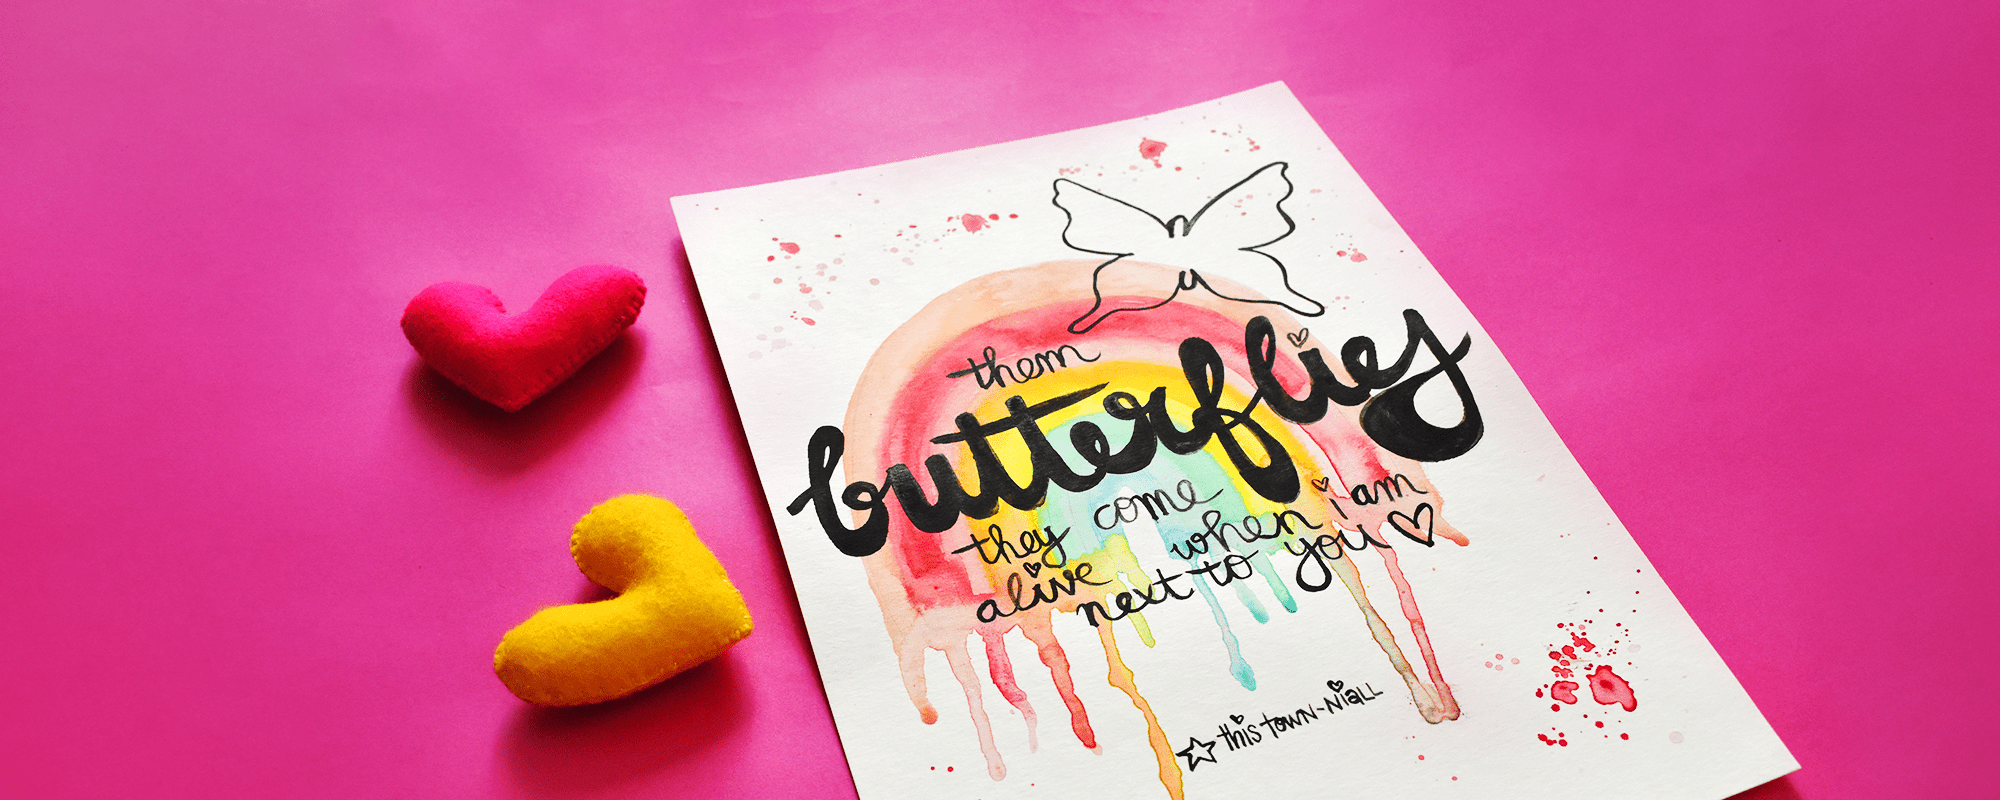 them
butterflies
they come
alive when i am
next to you
this town-Niall